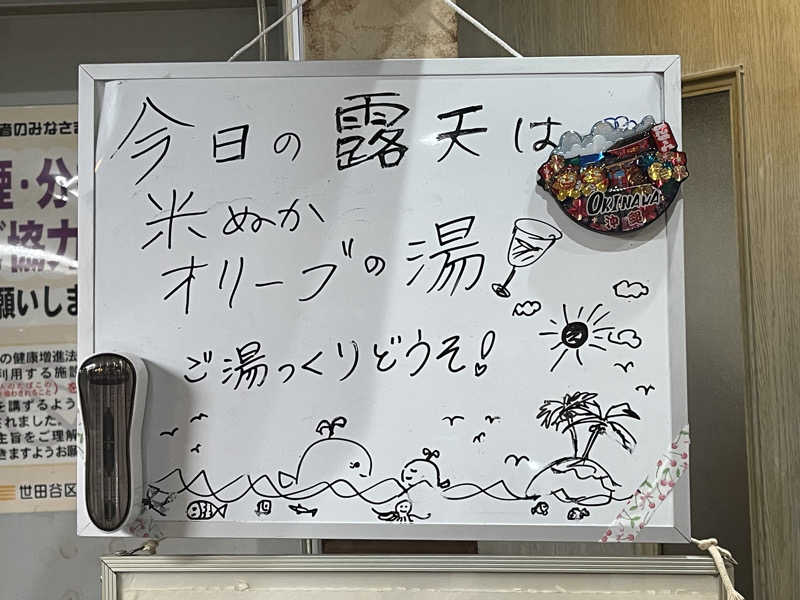 今日の露天は
米ぬか
オリーブの湯
ご湯っくりどうぞ!
OKINAWA
沖縄
者のみなさま
煙・分
協力
願いしま
の健康増進法
利用する施設
を講ずるよう
されました。
主旨をご理解
きますようお願
世田谷区